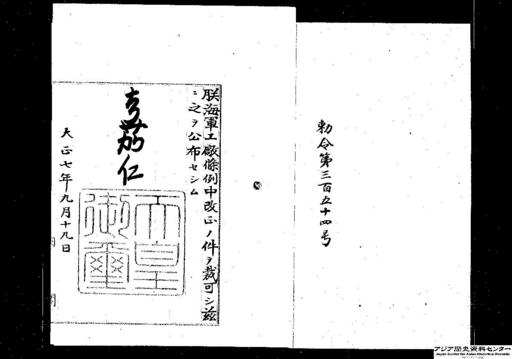 勅令第三百五十四号
朕海軍工廠條例中改正ノ件ヲ裁可シ茲
ニ之ヲ公布セシム
嘉仁
天皇
御璽
大正七年九月十九日
アジア歴史資料センター
Japan Center for Asian Historical Records